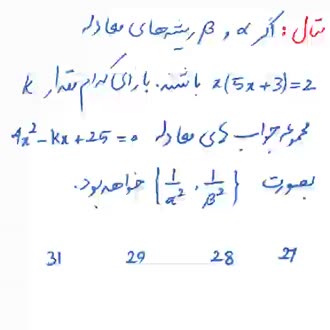 مثال: اگر α و β ریشه‌های معادله
x(5x+3)=2 باشند. بازای کدام مقدار k
مجموعه جواب‌های معادله 4x²-kx+25=0
بصورت {1/α², 1/β²} خواهد بود.
31 29 28 27